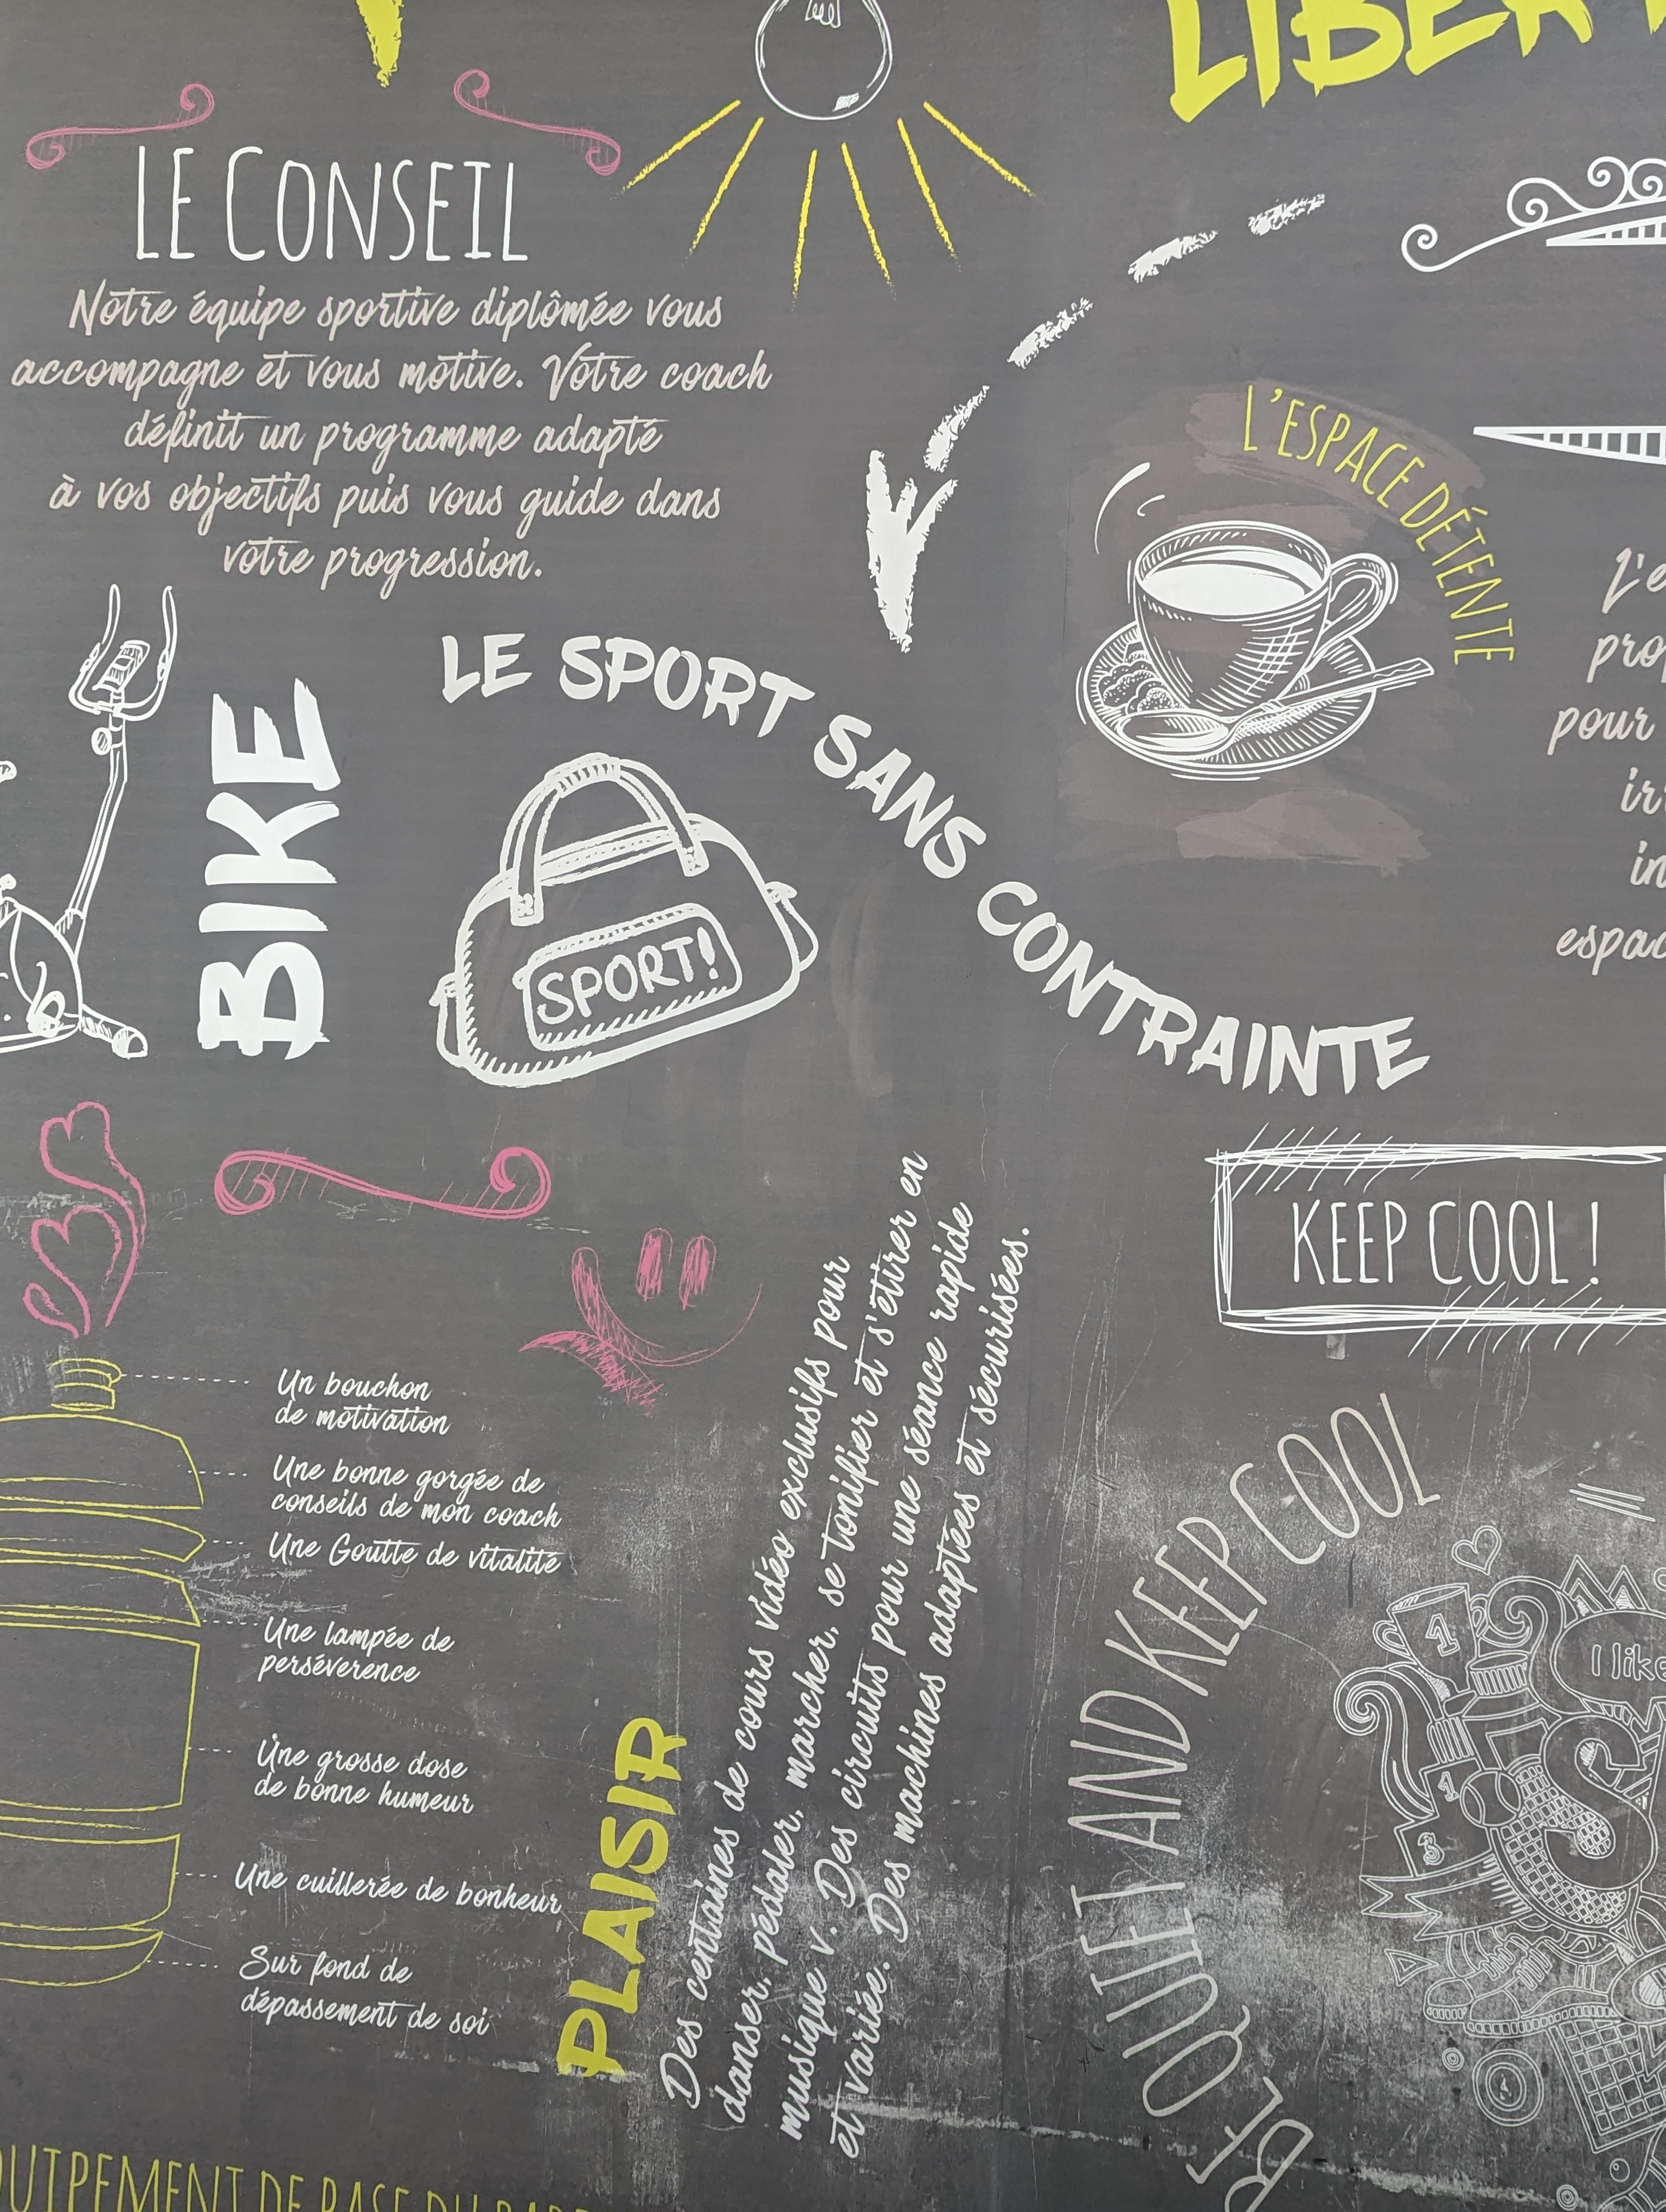 LE CONSEIL
Notre équipe sportive diplômée vous
accompagne et vous motive. Votre coach
définit un programme adapté
à vos objectifs puis vous guide dans
votre progression.
L'ESPACE DÉTENTE
pour
BIKE
LE SPORT SANS CONTRAINTE
SPORT!
KEEP COOL !
Un bouchon
de motivation
Une bonne gorgée de
conseils de mon coach
Une Goutte de vitalité
Une lampée de
perséverence
Une grosse dose
de bonne humeur
Une cuillerée de bonheur
Sur fond de
dépassement de soi
PLAISIR
Des centaines de cours vidéo exclusifs pour
danser, pédaler, marcher, se tonifier et s'étirer en
musique v. Des circuits pour une séance rapide
et variée. Des machines adaptées et sécurisées.
BE QUIET AND KEEP COOL
1
I like
1
3
S
DE BASE DU